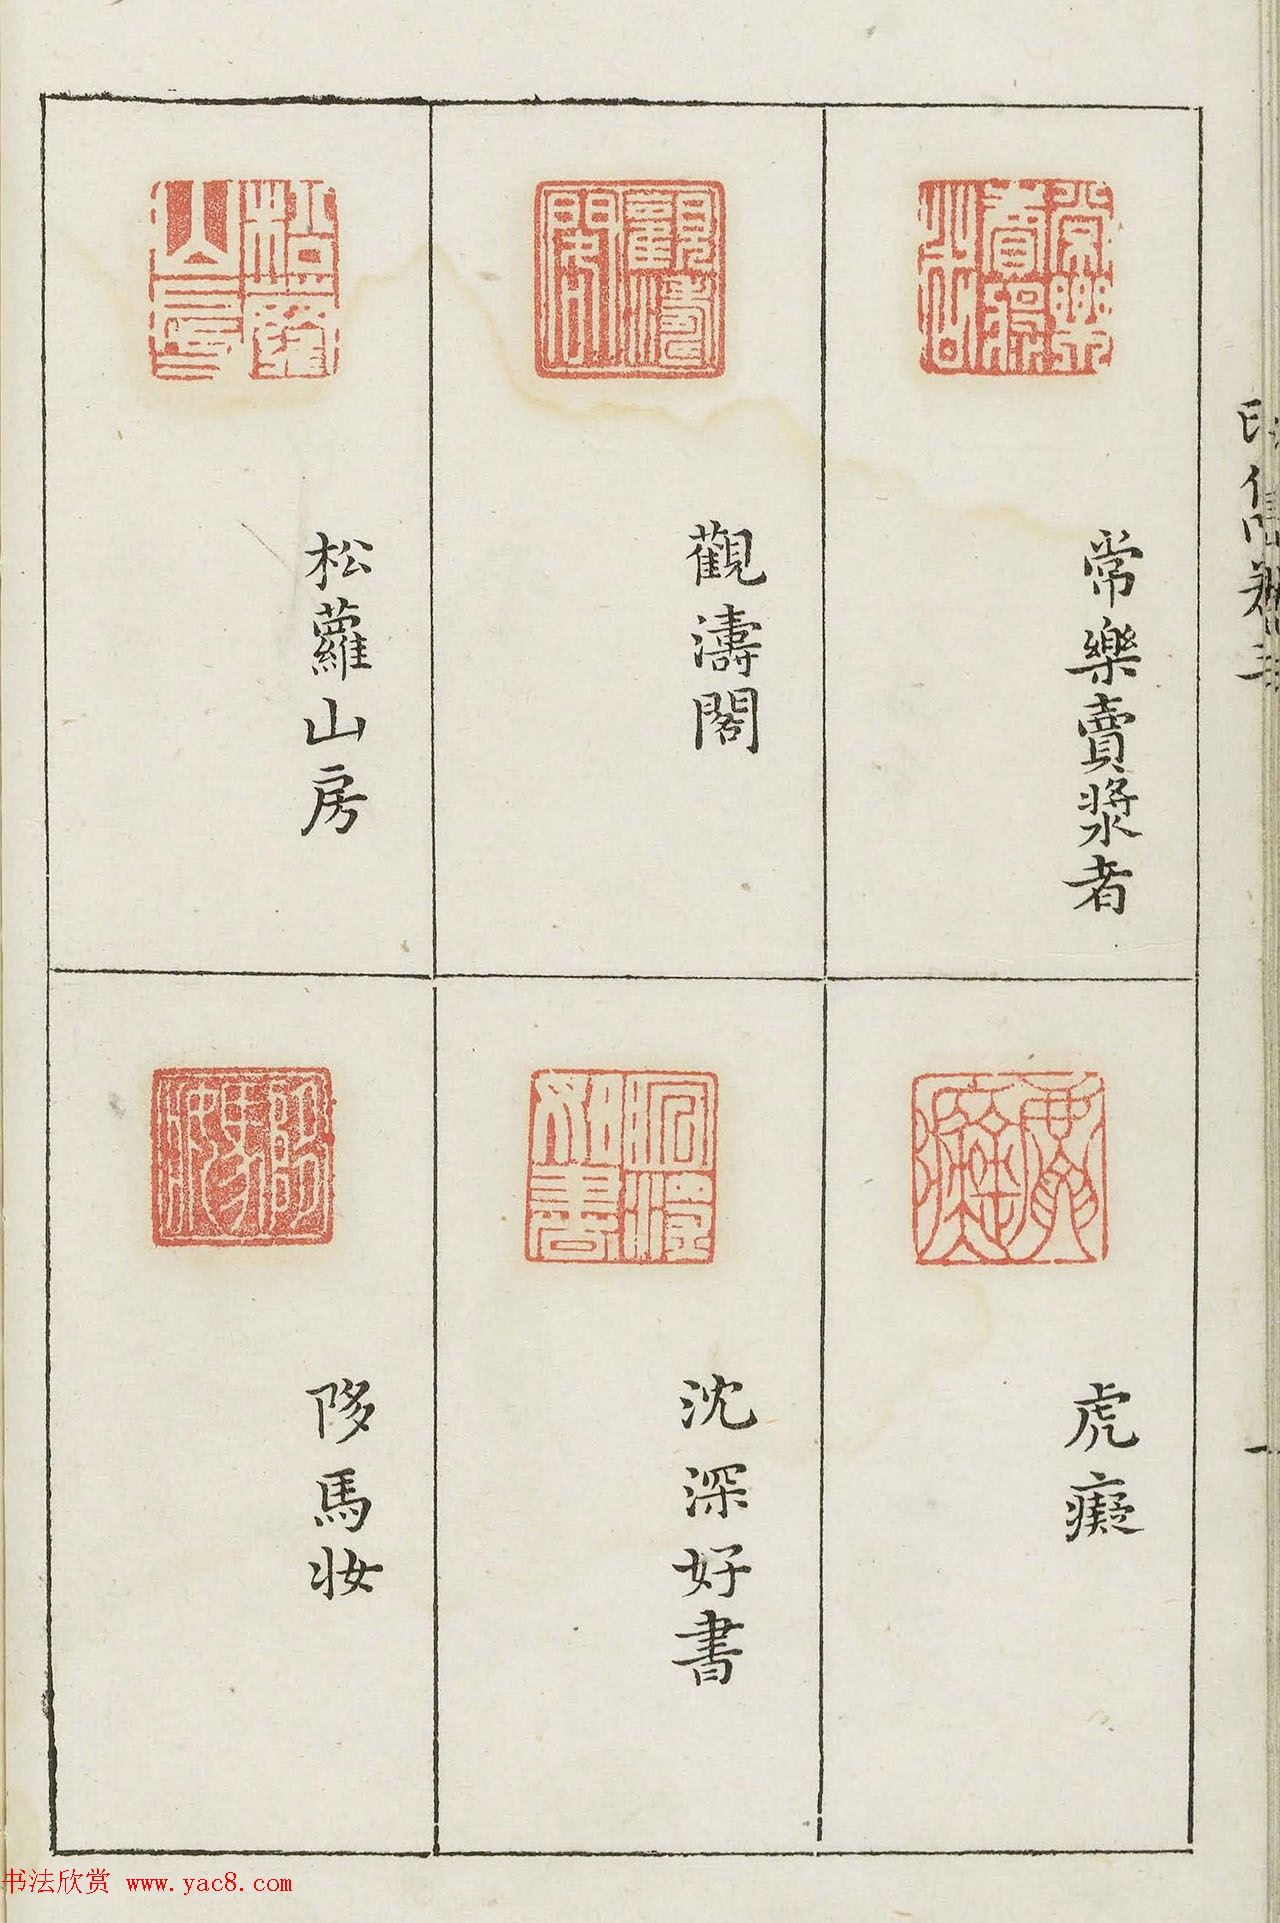 常樂賣漿者
觀濤閣
松蘿山房
虎癡
沈深好書
陊馬妝
书法欣赏 www.yac8.com